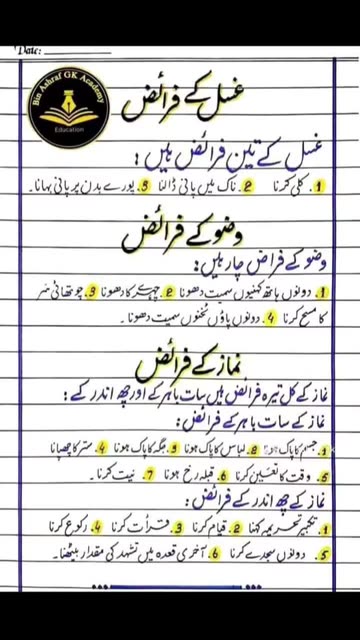 Date:
Bin Ashraf GK Academy
Education
غسل کے فرائض
غسل کے تین فرائض ہیں :
1. کلی کرنا 2. ناک میں پانی ڈالنا 3. پورے بدن پر پانی بہانا۔
وضو کے فرائض
وضو کے فراض چار ہیں:
1. دونوں ہاتھ کہنیوں سمیت دھونا 2. چہرے کا دھونا 3. چوتھائی سر
کا مسح کرنا 4. دونوں پاؤں ٹخنوں سمیت دھونا۔
نماز کے فرائض
نماز کے کل تیرہ فرائض ہیں سات باہر کے اور چھ اندر کے :
نماز کے سات باہر کے فرائض:
1. جسم کا پاک ہونا 2. لباس کا پاک ہونا 3. جگہ کا پاک ہونا 4. ستر کا چھپانا
5. وقت کا تعین کرنا 6. قبلہ رخ ہونا 7. نیت کرنا۔
نماز کے چھ اندر کے فرائض:
1. تکبیر تحریمہ کہنا 2. قیام کرنا 3. قرأت کرنا 4. رکوع کرنا
5. دونوں سجدے کرنا 6. آخری قعدہ میں تشہد کی مقدار بیٹھنا۔